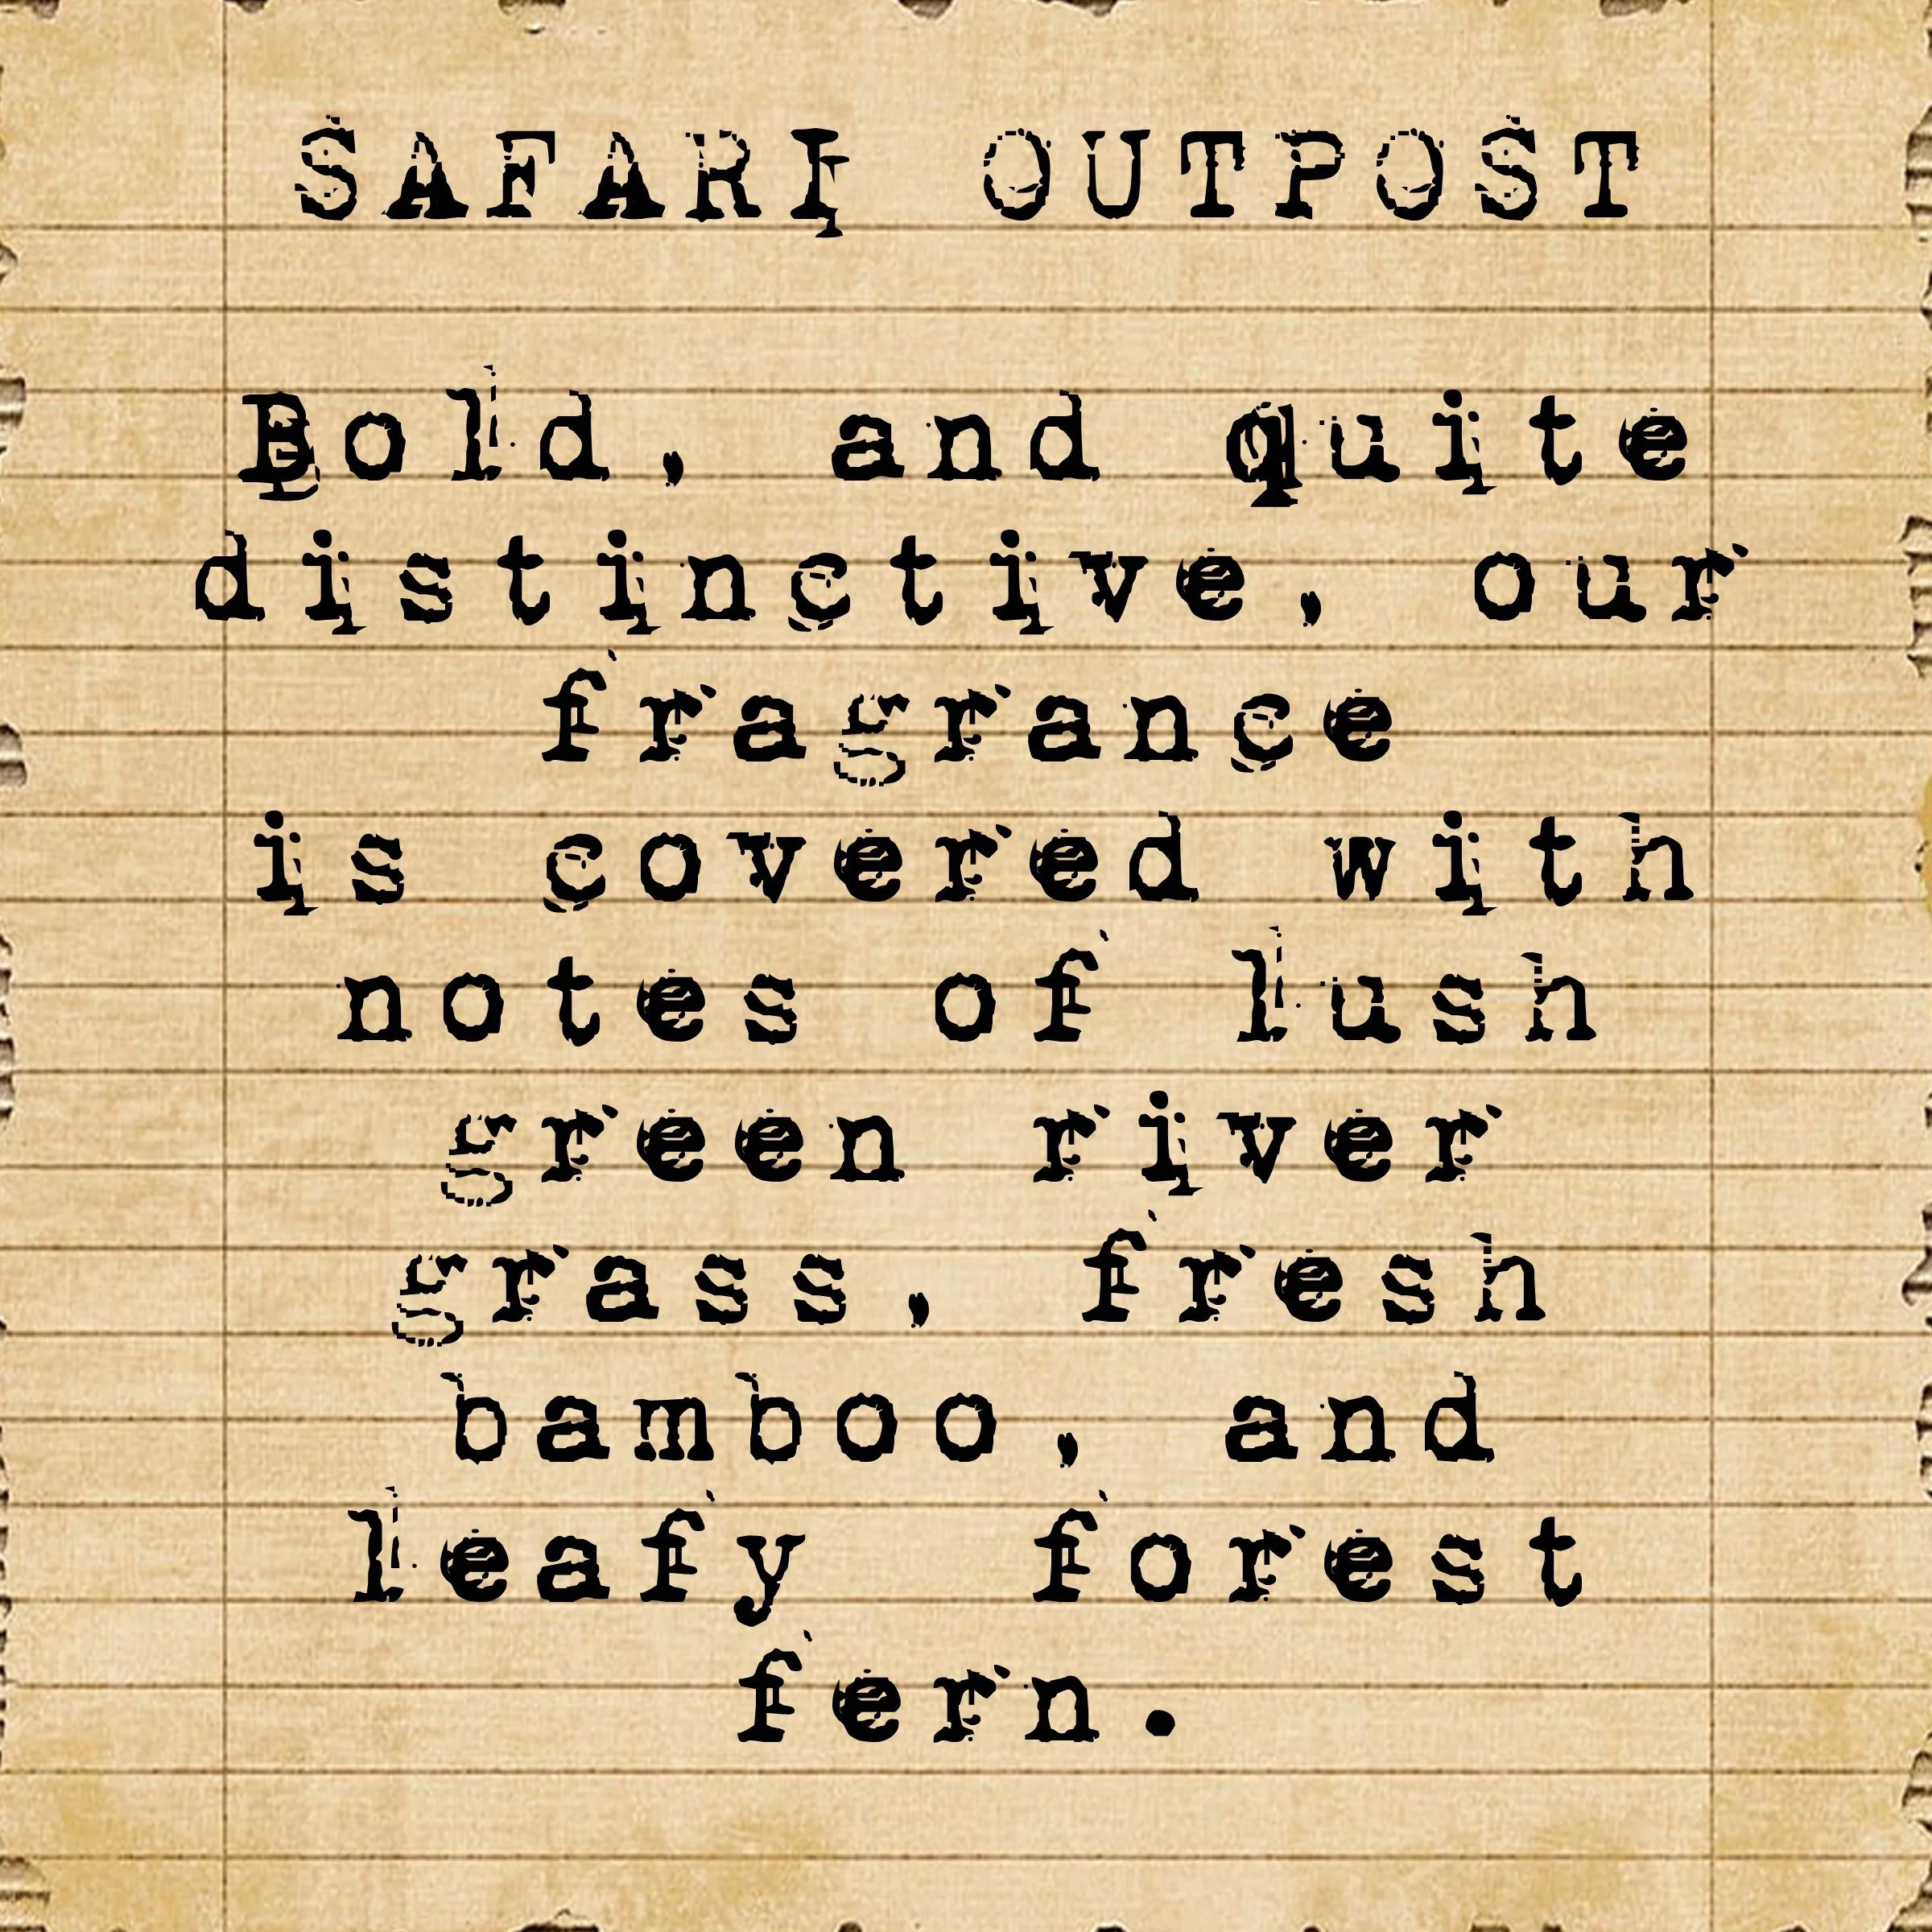 SAFARI OUTPOST
Bold, and quite
distinctive, our
fragrance
is covered with
notes of lush
green river
grass, fresh
bamboo, and
leafy forest
fern.